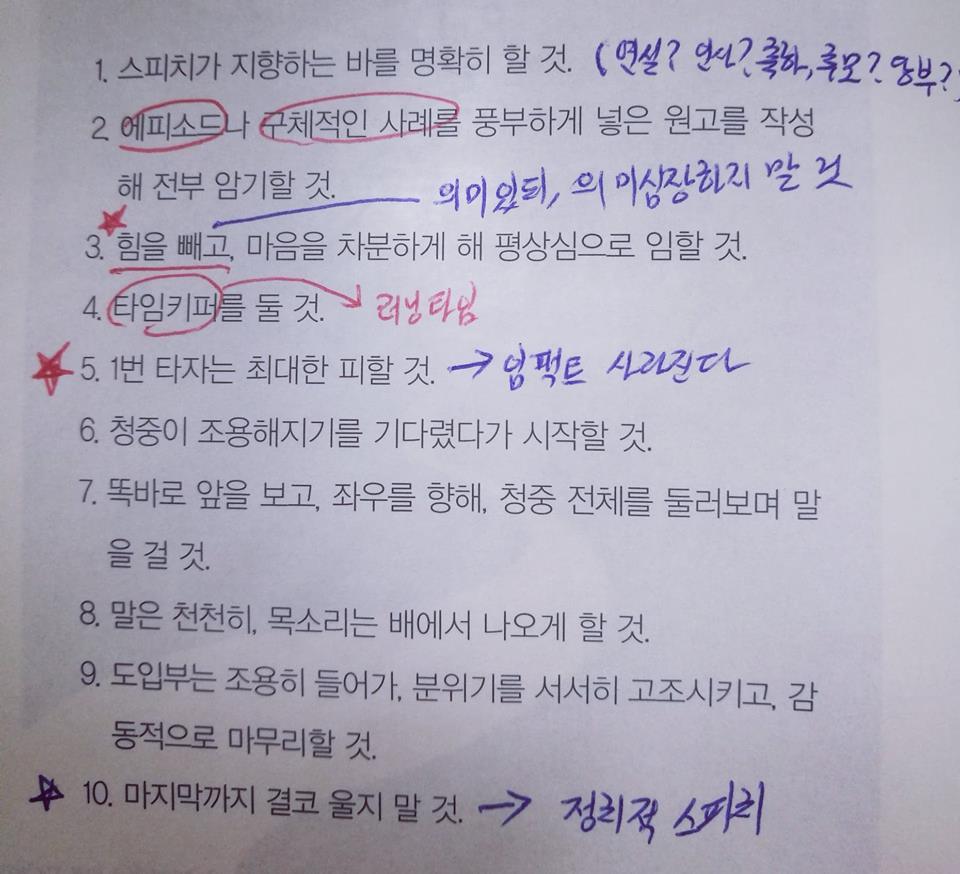 1. 스피치가 지향하는 바를 명확히 할 것. (연설? 인사? 축하, 추모? 당부?)
2. 에피소드나 구체적인 사례를 풍부하게 넣은 원고를 작성
해 전부 암기할 것.
의미있되, 의미심장하지 말 것
3. 힘을 빼고, 마음을 차분하게 해 평상심으로 임할 것.
4. 타임키퍼를 둘 것. → 러닝타임
5. 1번 타자는 최대한 피할 것. → 임팩트 사라진다
6. 청중이 조용해지기를 기다렸다가 시작할 것.
7. 똑바로 앞을 보고, 좌우를 향해, 청중 전체를 둘러보며 말
을 걸 것.
8. 말은 천천히, 목소리는 배에서 나오게 할 것.
9. 도입부는 조용히 들어가, 분위기를 서서히 고조시키고, 감
동적으로 마무리할 것.
10. 마지막까지 결코 울지 말 것. → 스피치